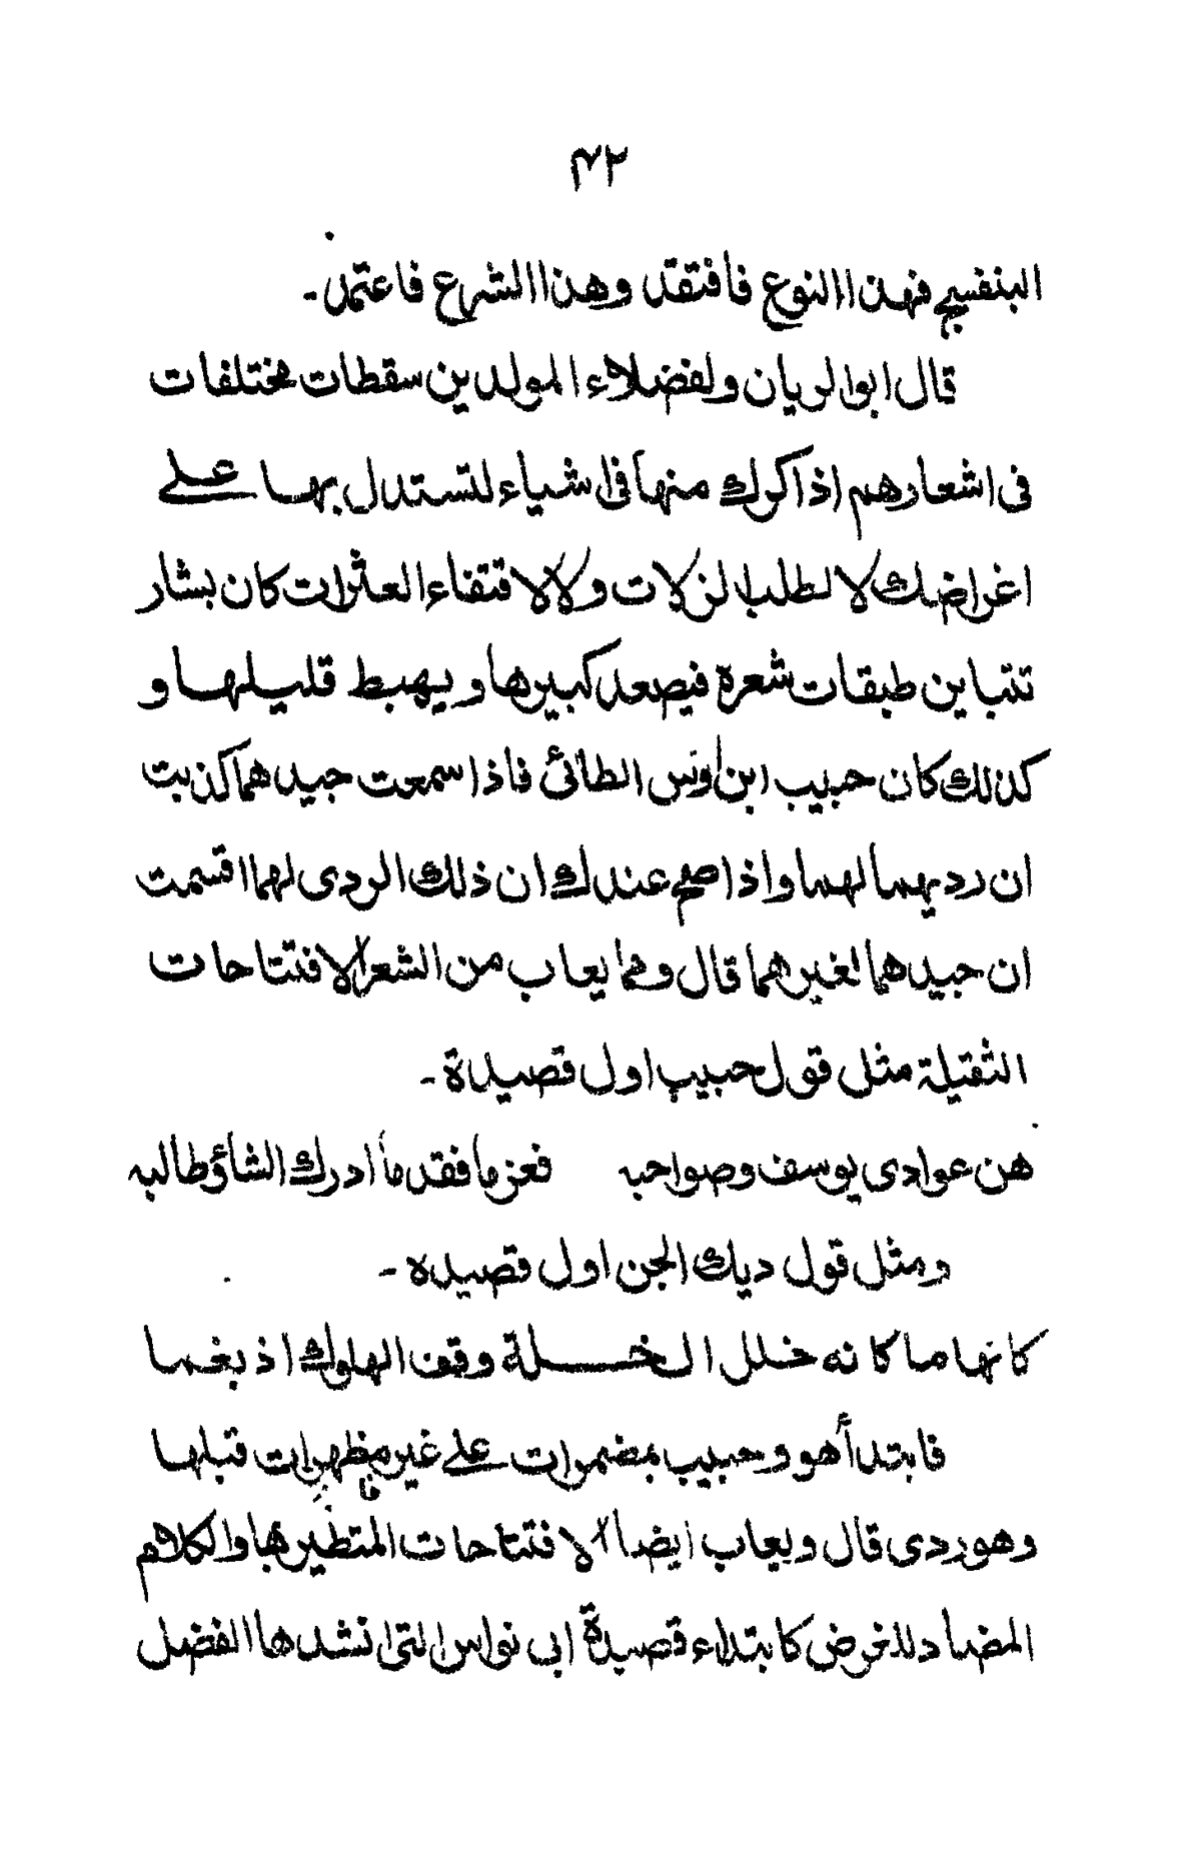 ۴۲
البنفسج فهذا النوع فافتقد وهذا الشرع فاعتمد۔
قال ابوالريان ولفضلاء المولدين سقطات مختلفات
فى اشعارهم اذاكرك منها فى اشياء لتستدل بها على
اغراضك لا لطلب الزلات ولا لاقتفاء العثرات كان بشار
تتباين طبقات شعره فيصعد كبيرها ويهبط قليلها و
كذلك كان حبيب ابن اوس الطائى فاذا سمعت جيدهما كذبت
ان رديهما لهما واذا صح عندك ان ذلك الردى لهما اقسمت
ان جيدهما لغيرهما قال ومما يعاب من الشعر الافتتاحات
الثقيلة مثل قول حبيب اول قصيدة ۔
هن عوادى يوسف وصواحبه فعزما فقدما ادرك الشأو طالبه
ومثل قول ديك الجن اول قصيده ۔
كانها ما كانه خلل الخلة وقف الهلوك اذ بغما
فابتدأ هو وحبيب بمضمرات على غير مظهرات قبلها
وهو ردى قال ويعاب ايضا الافتتاحات المتطير بها والكلام
المضاد للغرض كابتداء قصيدة ابى نواس التى انشدها الفضل